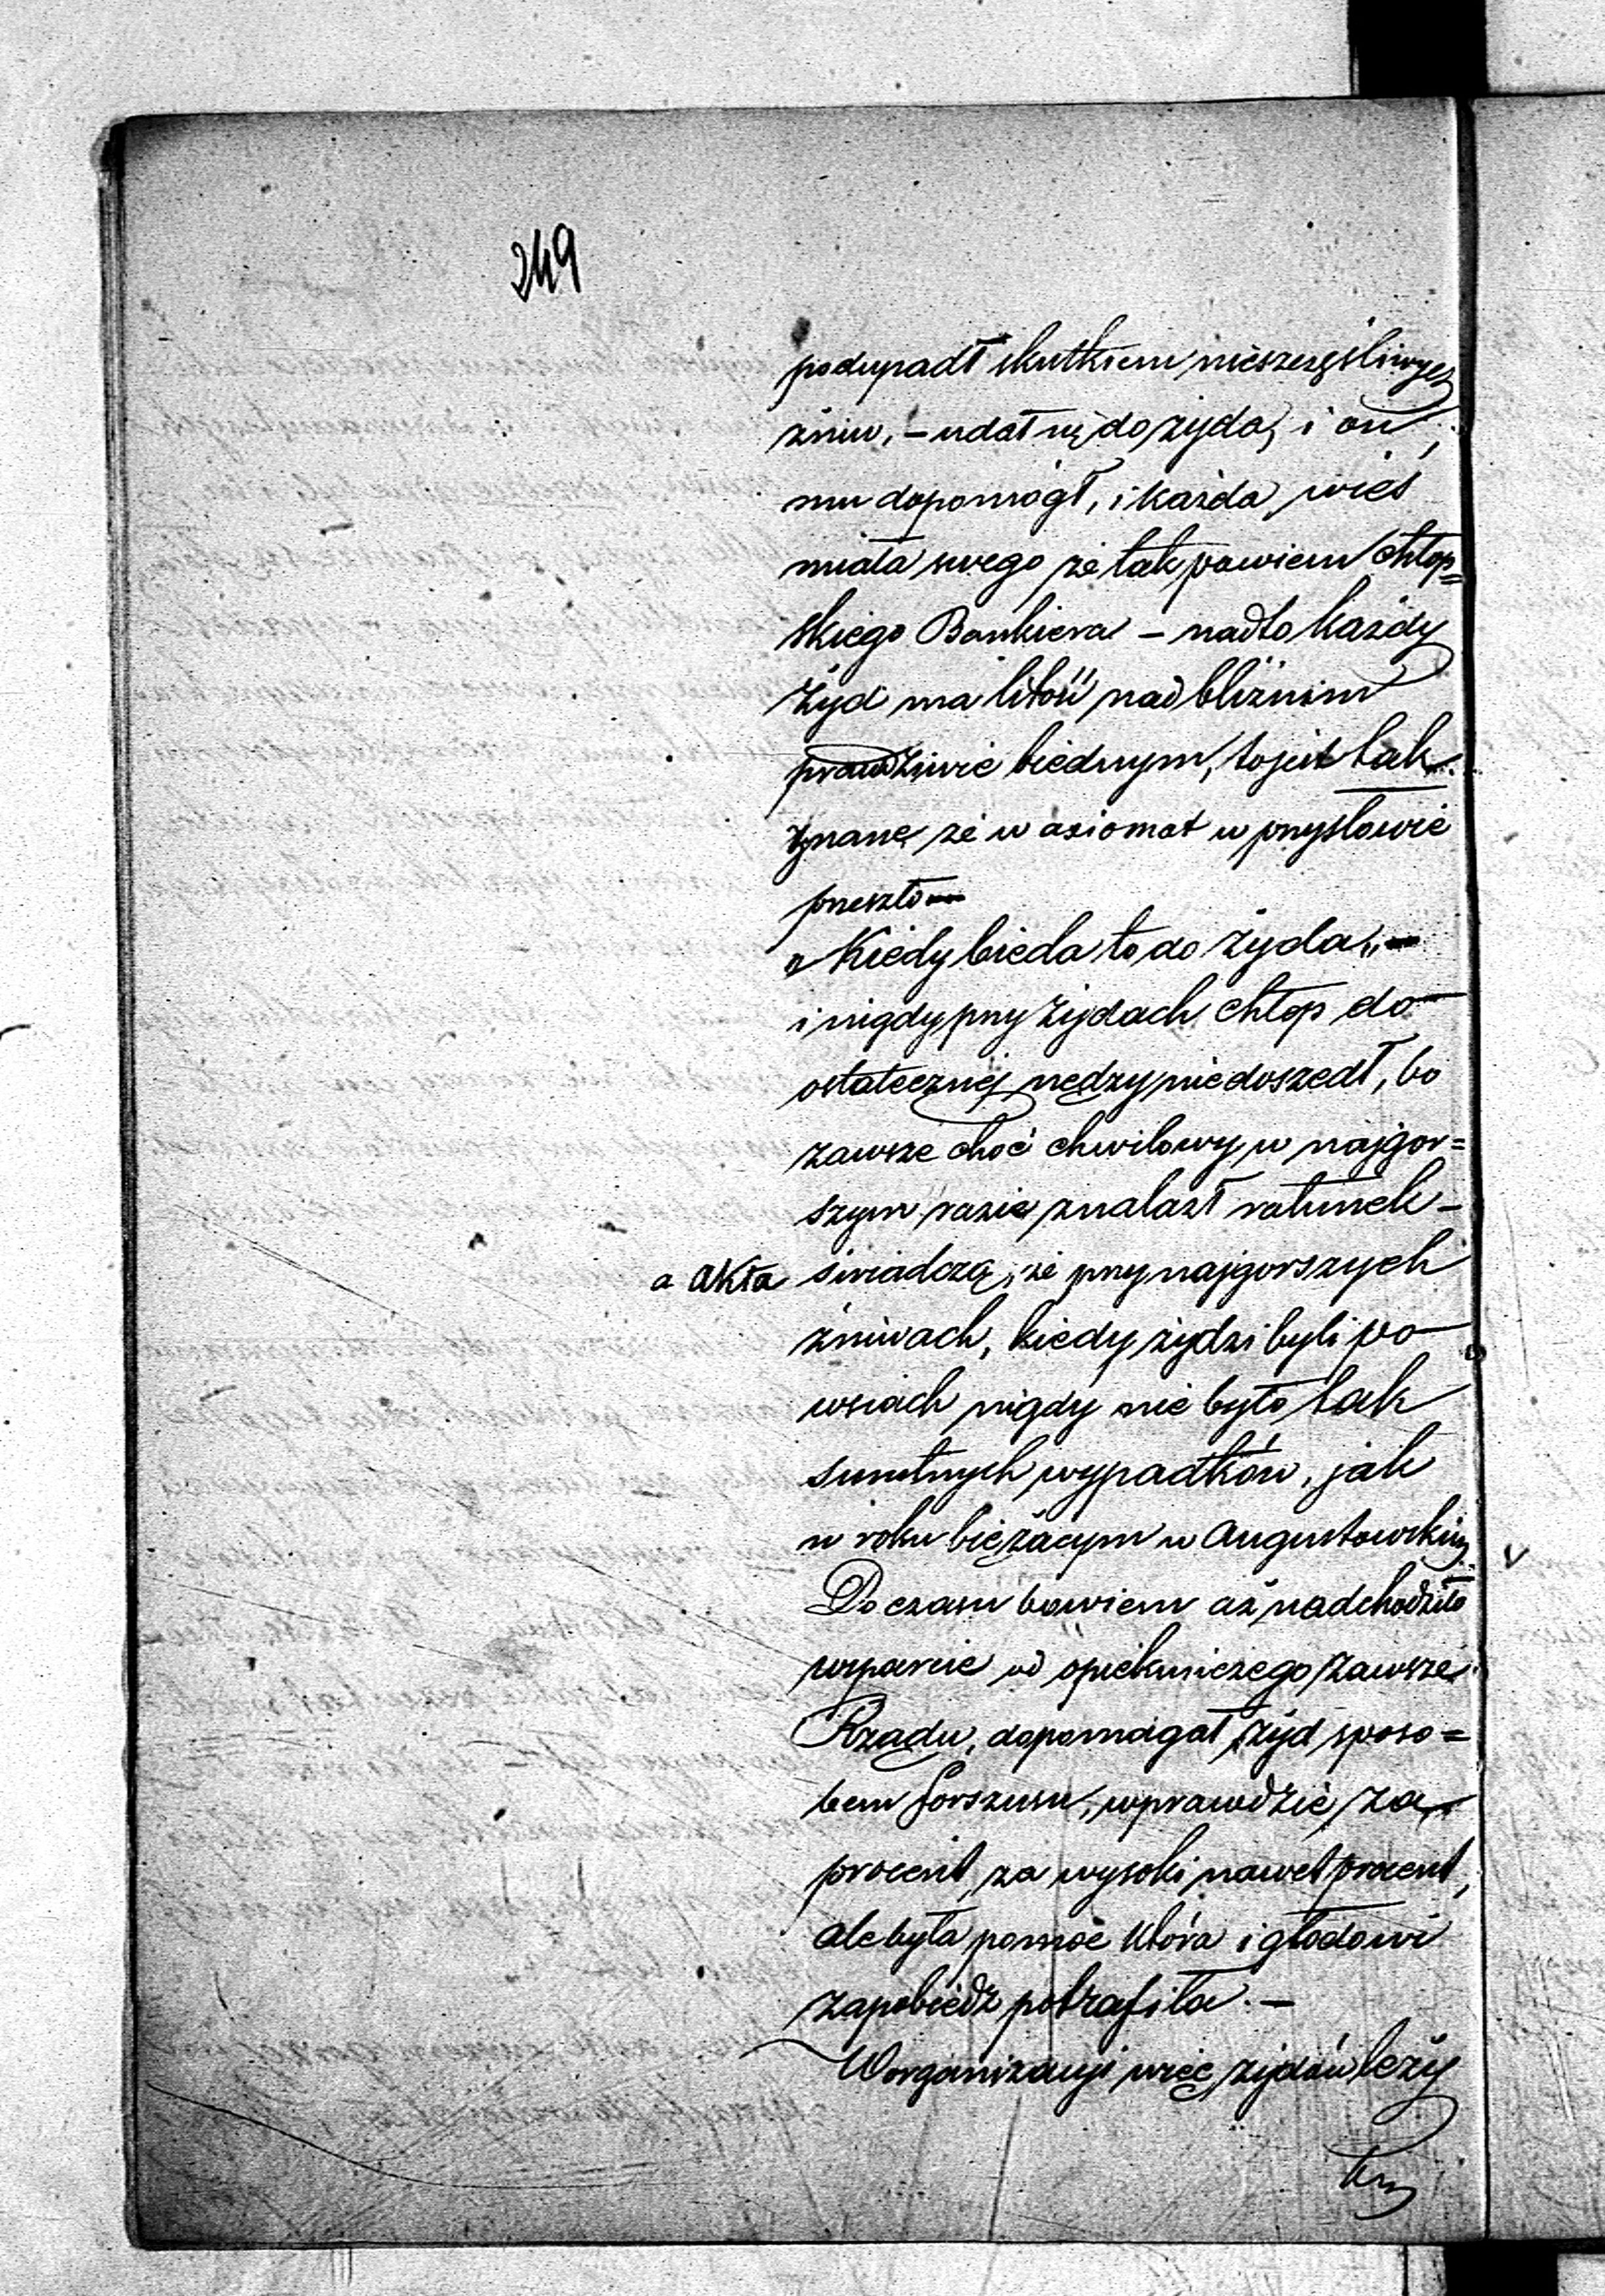 249
podupadł skutkiem nieszczęśliwych
żniw, – udał się do żyda, i on
mu dopomógł, i każda wieś
miała swego że tak powiem chłop=
skiego Bankiera – nadto każdy
Żyd ma litość nad bliźnim
prawdziwie biednym, to jest tak
znane że w axiomat w przysłowie
przeszło –
„Kiedy bieda to do żyda„ –
i nigdy przy żydach chłop do
ostatecznej nędzy nie doszedł, bo
zawsze choć chwilowy w najgor=
szym razie znalazł ratunek –
a akta świadczą, że przy najgorszych
żniwach, kiedy żydzi byli po
wsiach nigdy nie było tak
smutnych wypadków, jak
w roku bieżącym w Augustowskim
Do czasu bowiem aż nadchodziło
wsparcie od opiekuńczego zawsze
Rządu, dopomagał żyd sposo=
bem forszusu, wprawdzie za
procent, za wysoki nawet procent,
ale była pomoc która i głodowi
zapobiedz potrafiła. –
W organizacyi więc żydów leży